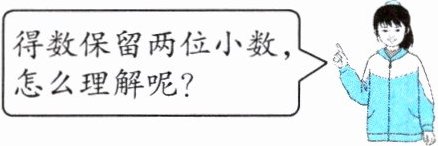 得数保留两位小数，
怎么理解呢？